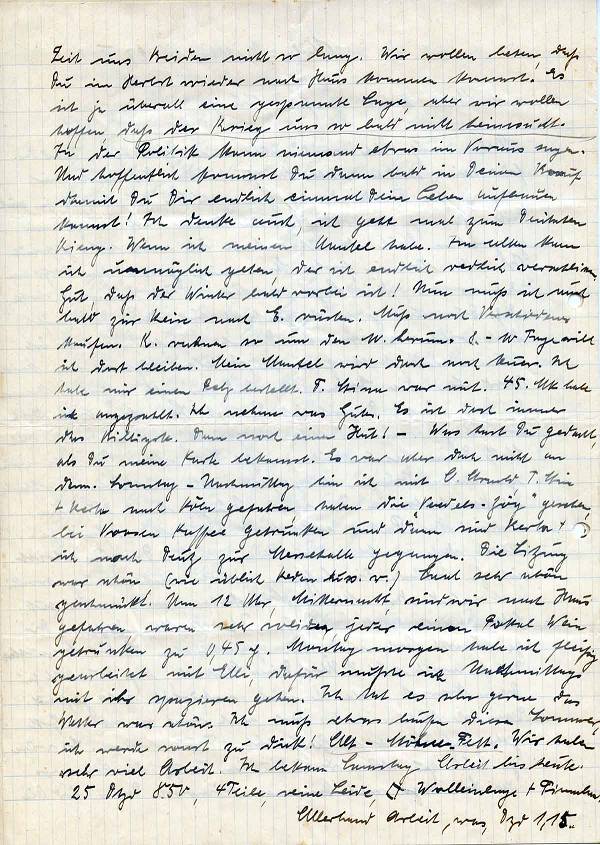 Zeit uns beiden nicht so lang. Wir wollen beten, daß
Du im Herbst wieder nach Haus kommen kannst. Es
ist ja überall eine gespannte Lage, aber wir wollen
hoffen daß der Krieg uns so bald nicht heimsucht.
In der Politik kann niemand etwas im Voraus sagen.
Und hoffentlich kommst Du dann bald in Deinen Beruf
damit Du Dir endlich einmal Dein Leben aufbauen
kannst! Ich denke auch, ich geh mal zum
Wenn ich meinen Mantel habe. Im alten kann
ich unmöglich gehen, der ist endlich redlich verschlissen.
Gut, daß der Winter bald vorbei ist! Nun muß ich mich
bald zur Reise nach E. rüsten. Muß noch Verschiedenes
kaufen. K. rechnen so um den herum. 8. - 10 Tage will
ich dort bleiben. Mein Mantel wird doch noch teuer. Ich
habe mir einen Pelz bestellt. T. Stina war mit. 45. Mk habe
ich angezahlt. Ich nehme was Gutes. Es ist doch immer
das Billigste. Dann noch einen Hut! - Was hast Du gedacht,
als Du meine Karte bekamst. Es war aber doch nicht an
dem. Sonntag - Nachmittag bin ich mit O. Arnold, T. Stin
+ Herta nach Köln gefahren haben die "Veedels-Zög" gesehen,
bei Kaffee getrunken und dann sind Herta +
ich nach Deutz zur Messehalle gegangen. Die Sitzung
war schön (wie üblich Reden usw.) Saal sehr schön
geschmückt. Um 12 Uhr, Mitternacht, sind wir nach Haus
gefahren, waren sehr solide, jeder einen Pokal Wein
getrunken zu 0,45 Montag morgen habe ich fleißig
gearbeitet mit Elli, dafür mußte ich Nachmittags
mit ihr spazieren gehen. Ich tat es sehr gerne, das
Wetter war schön. Ich muß etwas laufen diesen Sommer,
ich werde sonst zu dick! Wir haben
sehr viel Arbeit. Ich bekam Samstag Arbeit bis heute.
25 Dtzd 850, 4 Teile, reine Seide, Wolleinlage +
Allerhand Arbeit, was, Dzd 1,15.